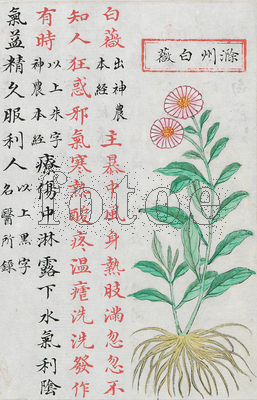 滁州白薇
白薇出神農本經主暴中風身熱肢滿忽忽不
知人狂惑邪氣寒熱酸疼溫瘧洗洗發作
有時以上朱字神農本經療傷中淋露下水氣利陰
氣益精久服利人以上黑字名醫所錄
fotoe